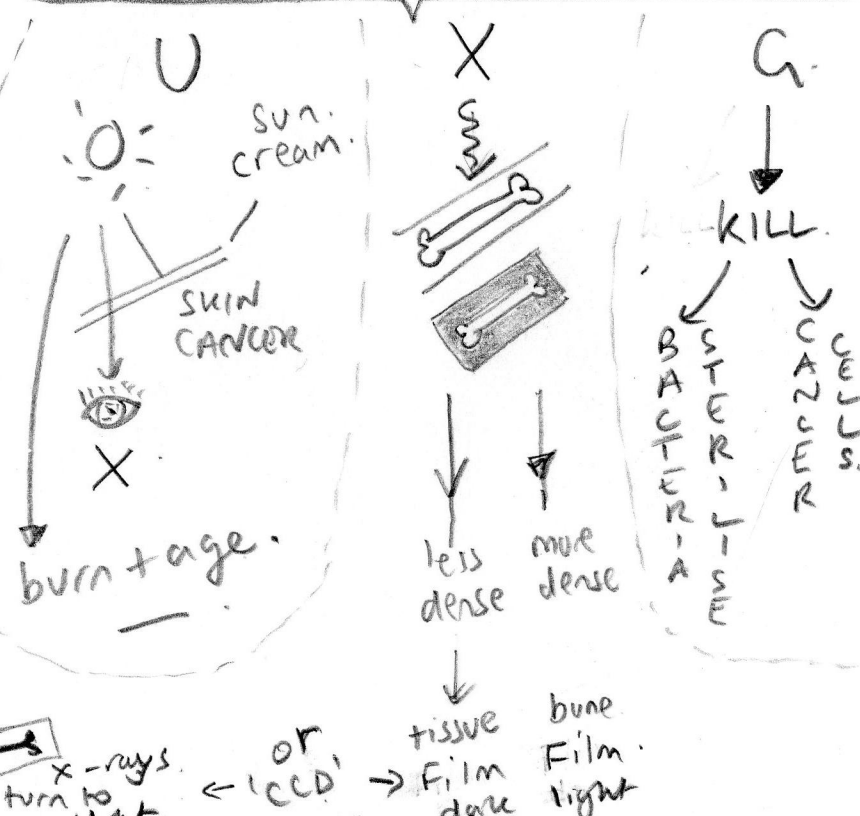 U
sun.
cream.
SKIN
CANCER
X
burn + age.
X
less
dense
more
dense
tissue
Film
dark
bone
Film.
light
or
'CCD'
x-rays
turn to
G.
KILL.
BACTERIA
STERILISE
CANCER
CELLS.